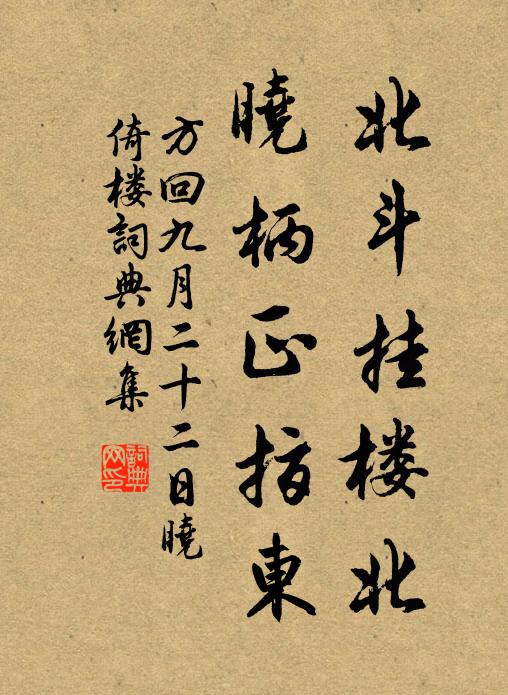 北斗挂楼北
曉柄正指東
方回九月二十二日曉
倚楼詞典網集
詞典
网印